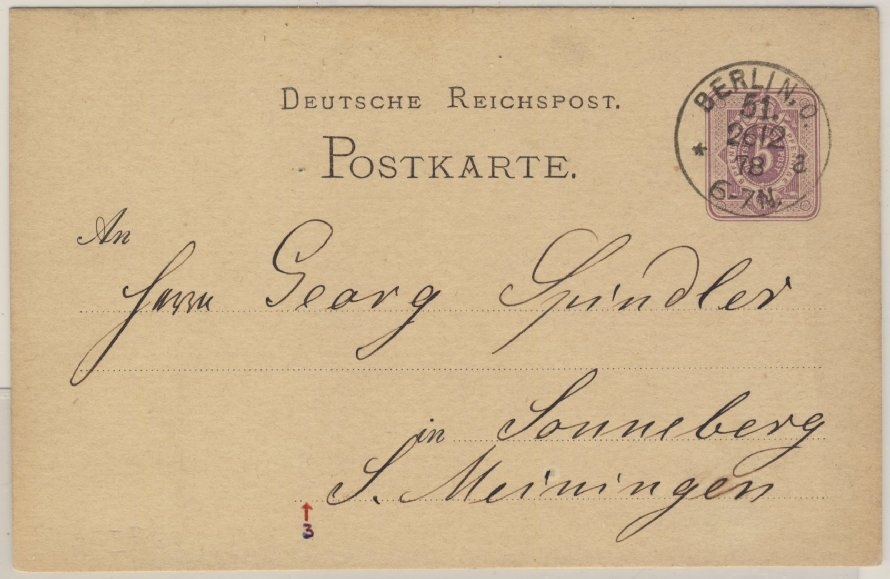 DEUTSCHE REICHSPOST.
POSTKARTE.
BERLIN, O.
51.
26 12
78 a
6-7N.
5
An
Herrn Georg Spindler
in Sonneberg
S. Meiningen
3